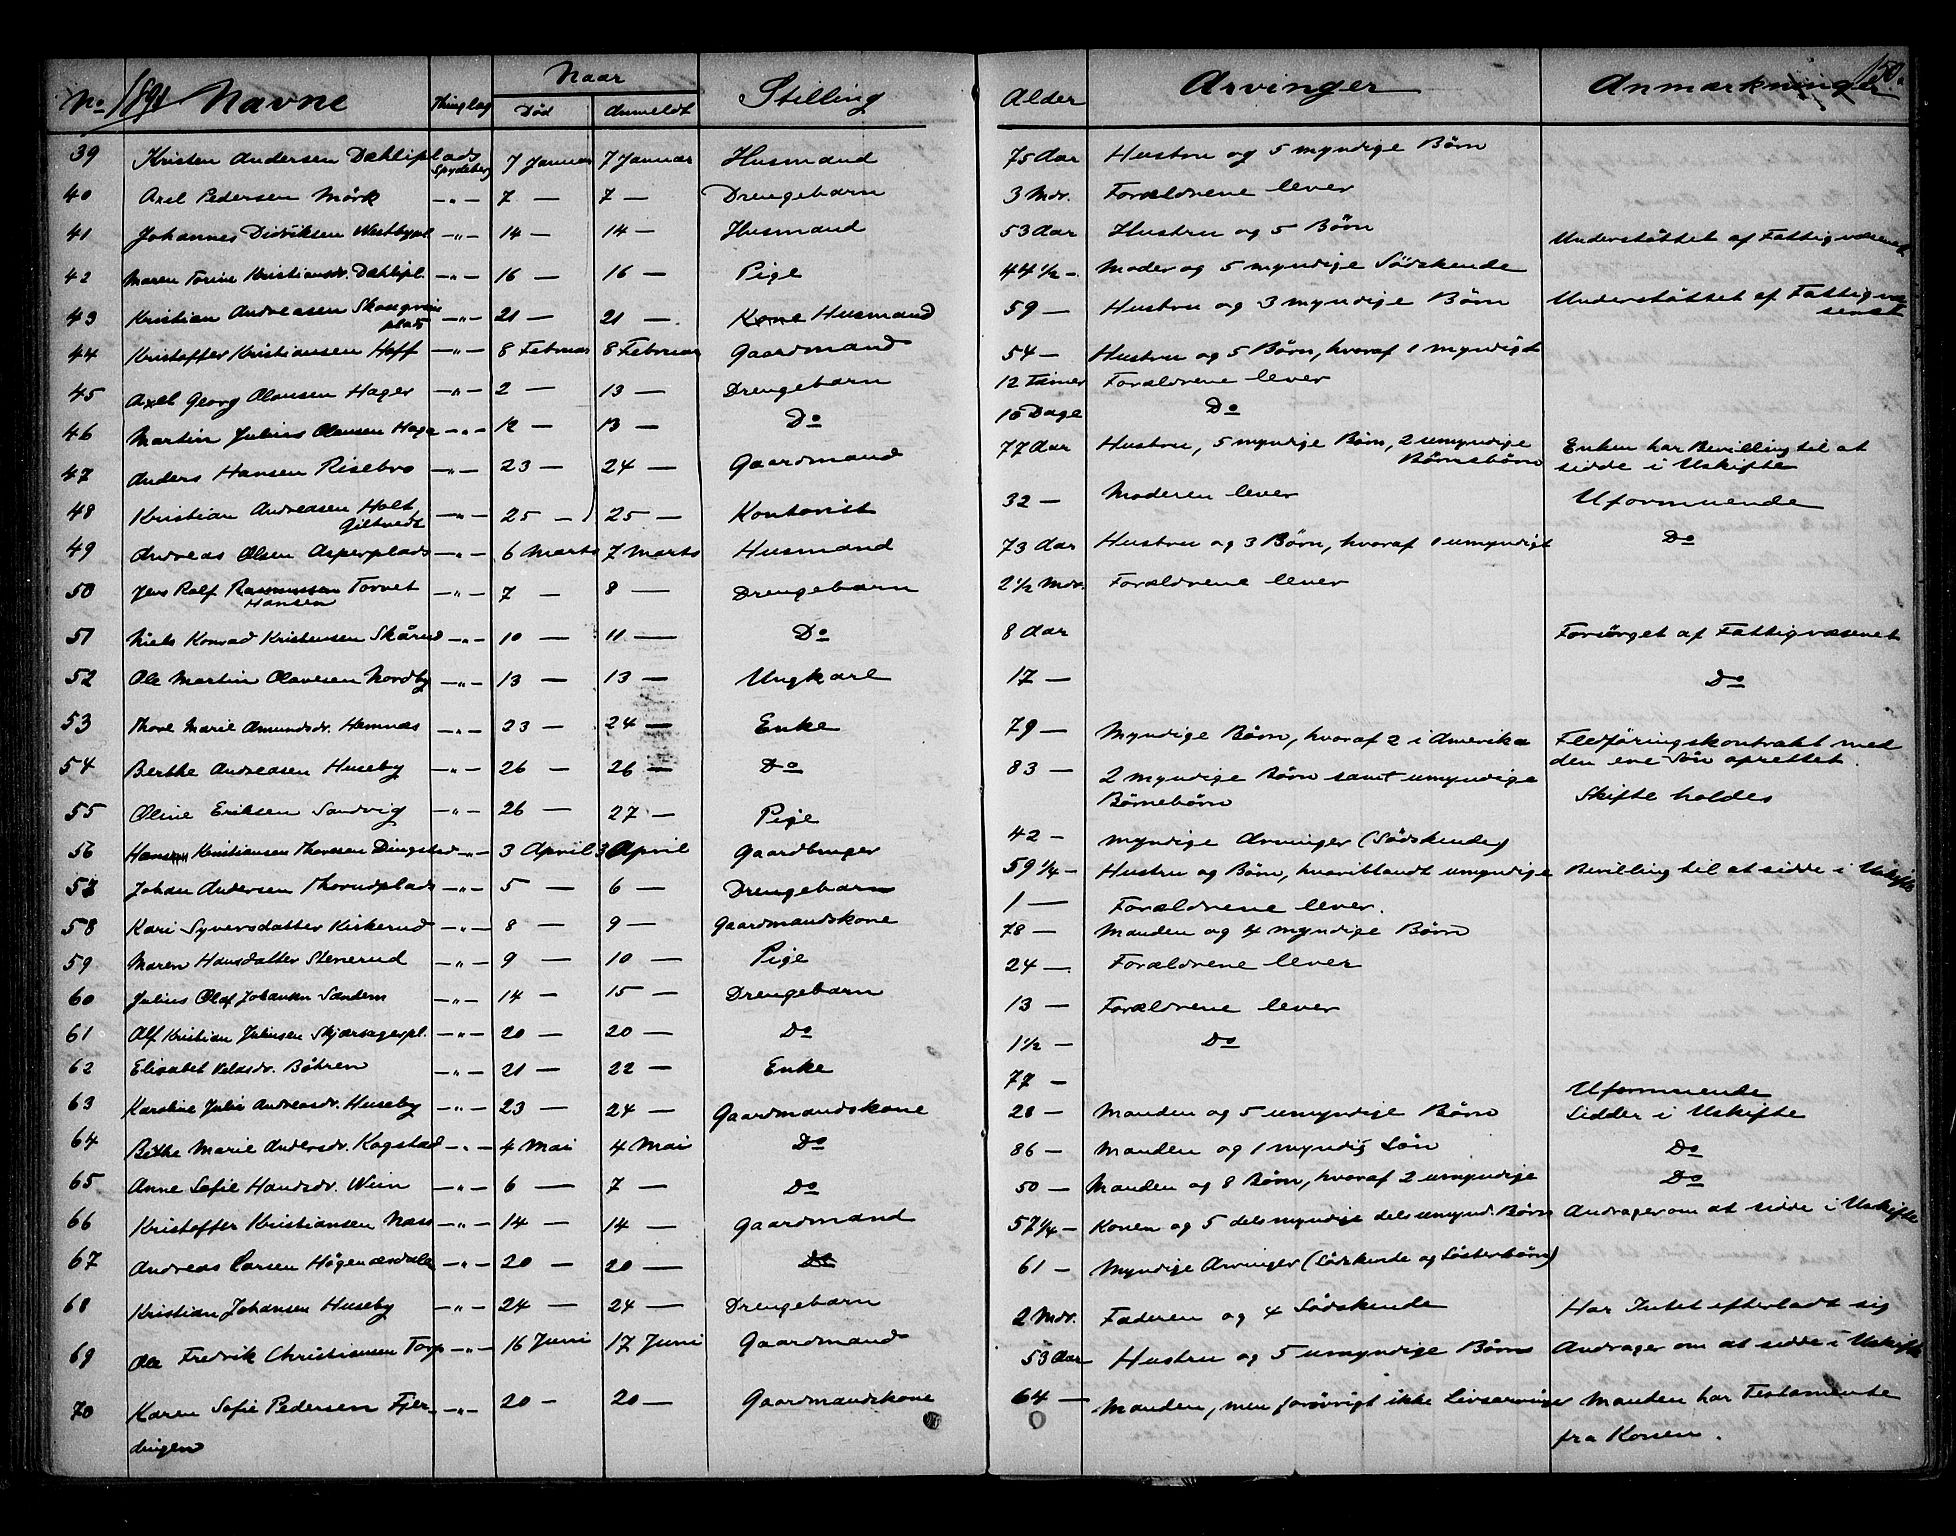 150.
No 1891 Navne Thinglag Naar Død Anmeldt Stilling Alder Arvinger Anmærkninger
39 Kristen Andersen Dæhliplads Spydeberg 7 Januar 7 Januar Husmand 75 Aar Hustru og 5 myndige Børn
40 Axel Pedersen Mörk —"— 7 — 7 — Drengebarn 3 Mdr. Forældrene lever
41 Johannes Didriksen Westbypl. —"— 14 — 14 — Husmand 53 Aar Hustru og 5 Børn Understøttet af Fattigvæsenet
42 Maren Torine Kristiansdr. Dæhlipl. —"— 16 — 16 — Pige 44 1/2 — Moder og 5 myndige Södskende
43 Kristian Andreassen plads —"— 21 — 21 — Kone Husmand 59 — Hustru og 3 myndige Børn Understøttet af Fattigvæsenet
44 Kristoffer Kristiansen Hoff —"— 8 Februar 8 Februar Gaardmand 54 — Hustru og 5 Børn, hvoraf 1 myndigt
45 Axel Georg Olausen Hager —"— 2 — 13 — Drengebarn 12 Timer Forældrene lever
46 Martin Julius Olausen Haga —"— 12 — 13 — Do 15 Dage Do
47 Anders Hansen Risebro —"— 23 — 24 — Gaardmand 77 Aar Hustru, 5 myndige Børn, 2 umyndige Børnebørn Enken har Bevilling til at sidde i Uskifte
48 Kristian Andreasen Holt Giltvedt —"— 25 — 25 — Kontorist 32 — Moderen lever Uformuende
49 Andreas Olsen Asperplads —"— 6 Marts 7 Marts Husmand 73 Aar Hustru og 3 Børn, hvoraf 1 umyndigt Do
50 Jens Rolf Rasmussen Hansen Torvet —"— 7 — 8 — Drengebarn 2 1/2 Mdr. Forældrene lever
51 Niels Konrad Kristensen Skårud —"— 10 — 11 — Do 8 Aar Forsörget af Fattigvæsenet
52 Ole Martin Olavesen Nordby —"— 13 — 13 — Ungkarl 17 — Do
53 Thore Marie Amundsdr. Hemnæs —"— 23 — 24 — Enke 79 — Myndige Børn, hvoraf 2 i Amerika Fledføringskontrakt med den ene Sön oprettet.
54 Berthe Andreasen Huseby —"— 26 — 26 — Do 83 — 2 myndige Børn samt umyndige Børnebörn Skifte holdes
55 Oline Eriksen Sandvig —"— 26 — 27 — Pige 42 — myndige Arvinger (Södskende)
56 Hans Kristiansen Thoresen Dingstad —"— 3 April 3 April Gaardbruger 59 1/4 — Hustru og Børn, hvoriblandt umyndige Bevilling til at sidde i Uskifte
57 Johan Andersen Thorudplads —"— 5 — 6 — Drengebarn 1 — Forældrene lever.
58 Kari Syversdatter Kirkerud —"— 8 — 9 — Gaardmandskone 78 — Manden og 4 myndige Børn
59 Maren Hansdatter Stenerud —"— 9 — 10 — Pige 24 — Forældrene lever
60 Julius Olaf Johansen Sandem —"— 14 — 15 — Drengebarn 13 — Forældrene lever
61 Alf Kristian Juliussen Skjærsagerpl. —"— 20 — 20 — Do 1 1/2 — Do
62 Elisabet Böhren —"— 21 — 22 — Enke 77 — Uformuende
63 Karoline Julie Andreasdr. Huseby —"— 23 — 24 — Gaardmandskone 28 — Manden og 5 umyndige Børn Sidder i Uskifte
64 Berthe Marie Andersdr. Kogstad —"— 4 Mai 4 Mai Do 86 — Manden og 1 myndig Sön Do
65 Anne Sofie Hansdr. Wein —"— 6 — 7 — Do 50 — Manden og 8 Børn, hvoraf 2 umyndige Do
66 Kristoffer Kristiansen Næss —"— 14 — 14 — Gaardmand 57 1/4 — Konen og 5 dels myndige dels umynd. Børn Andrager om at sidde i Uskifte
67 Andreas Larsen Högenæsdalen —"— 20 — 20 — Do 61 — Myndige Arvinger (Södskende og Søsterbörn)
68 Kristian Johansen Huseby —"— 24 — 24 — Drengebarn 2 Mdr. Faderen og 4 Södskende Har Intet efterladt sig
69 Ole Fredrik Christiansen Torp —"— 16 Juni 17 Juni Gaardmand 53 Aar Hustru og 5 umyndige Børn Andrager om at sidde i Uskifte
70 Karen Sofie Pedersen Fjerdingen —"— 20 — 20 — Gaardmandskone 64 — Manden, men forövrigt ikke Livsarvinger Manden har Testamente fra Konen.